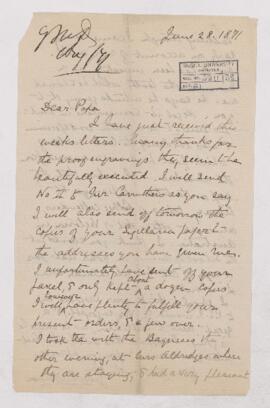 June 28. 1871
Dear Papa
I have just received this
weeks letters. Many thanks for
the proof engravings they seem to be
beautifully executed. I will send
No II to Mr Carruthers as you say
I will also send off tomorrow the
copies of your Sigillaria paper to
the addresses you have given me.
I unfortunately have sent off your
parcel, & only kept about a dozen copies
I will however have plenty to fulfill your
present orders, & a few over.
I took tea with the Bayneses the
other evening, at Mrs Aldridges where
they are staying, & had a very pleasant